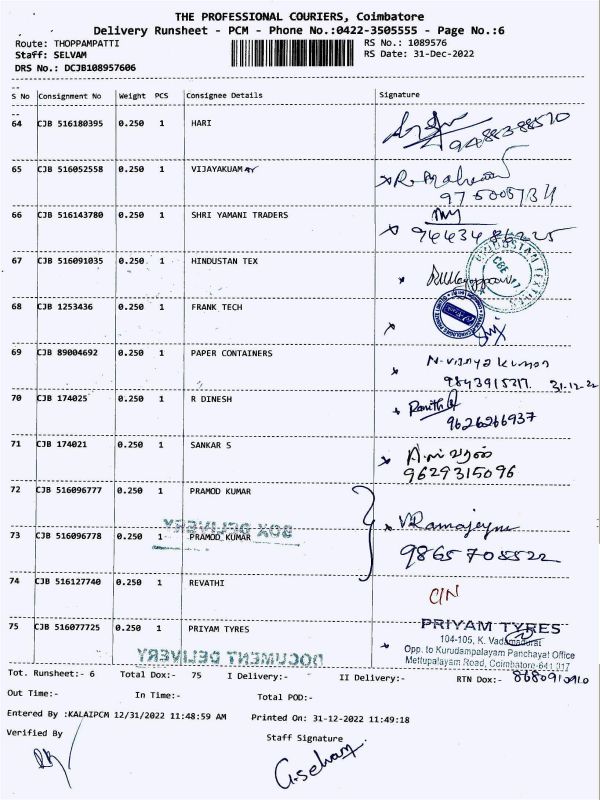 THE PROFESSIONAL COURIERS, Coimbatore
Delivery Runsheet - PCM - Phone No.:0422-3505555 - Page No.:6
Route: THOPPAMPATTI RS No.: 1089576
Staff: SELVAM RS Date: 31-Dec-2022
DRS No.: DCJB108957606
S No Consignment No Weight PCS Consignee Details Signature
64 CJB 516180395 0.250 1 HARI
65 CJB 516052558 0.250 1 VIJAYAKUAM
66 CJB 516143780 0.250 1 SHRI YAMANI TRADERS
67 CJB 516091035 0.250 1 HINDUSTAN TEX
HINDUSTAN TEXTILES
CBE
68 CJB 1253436 0.250 1 FRANK TECH
69 CJB 89004692 0.250 1 PAPER CONTAINERS N-vijaya kumar
31-12-22
70 CJB 174025 0.250 1 R DINESH
9626266937
71 CJB 174021 0.250 1 SANKAR S
9629315096
72 CJB 516096777 0.250 1 PRAMOD KUMAR
BOX DELIVERY
73 CJB 516096778 0.250 1 PRAMOD KUMAR
9865705522
74 CJB 516127740 0.250 1 REVATHI C/N
75 CJB 516077725 0.250 1 PRIYAM TYRES PRIYAM TYRES
104-105, K. Vadamadurai
Opp. to Kurudampalayam Panchayat Office
Mettupalayam Road, Coimbatore-641 017
DOCUMENT DELIVERY
Tot. Runsheet:- 6 Total Dox:- 75 I Delivery:- II Delivery:- RTN Dox:- 8680910910
Out Time:- In Time:- Total POD:-
Entered By :KALAIPCM 12/31/2022 11:48:59 AM Printed On: 31-12-2022 11:49:18
Verified By Staff Signature
G.selvam